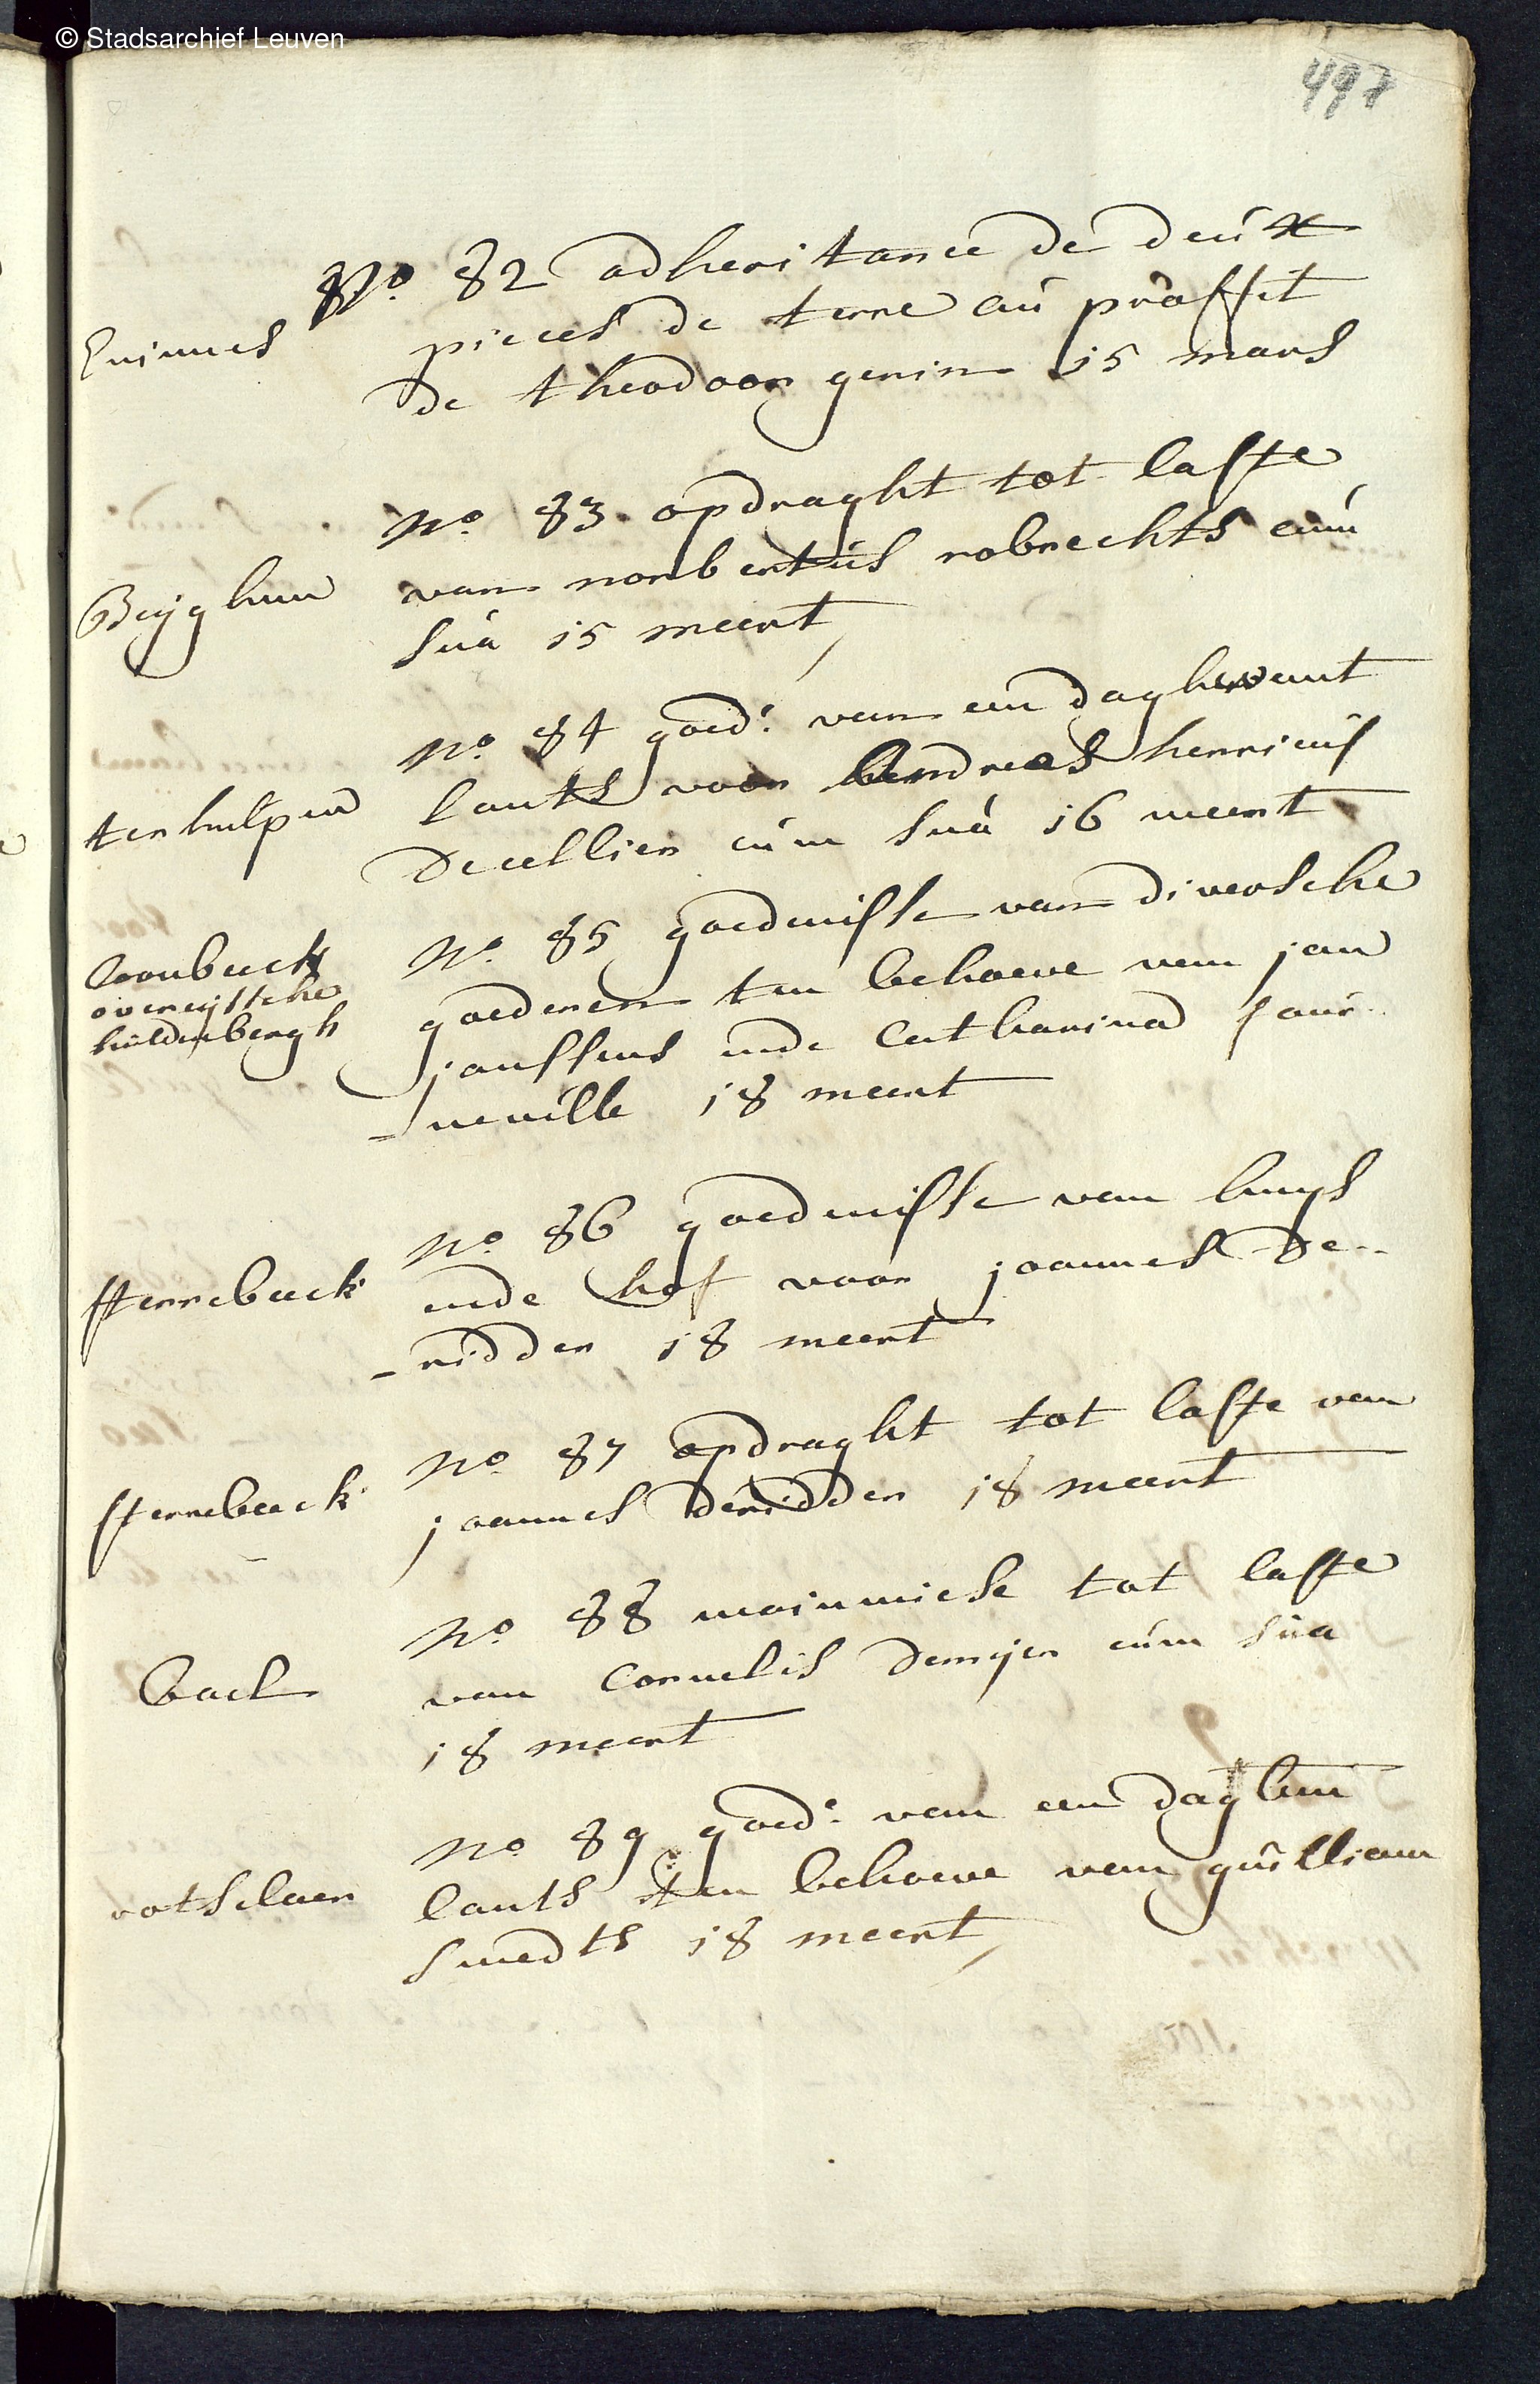 © Stadsarchief Leuven
497
No 82 adheritance de deúx
pieces de terre aú proffit
de theodoor genin 15 mars
Beijghem
No 83 opdraght tot laste
van norbertús robrechts cúm
súa 15 meert
terhulpen
No 84 goed: van een daghwant
lants voor Andreas henricús
decellier cúm súa 16 meert
Loonbeeck
overeijssche
huldenbergh
No 85 goedenisse van diversche
goederen ten behoeve van jan
janssens ende Catharina
18 meert
sterrebeeck
No 86 goedenisse van huijs
ende hof voor joannes De
- ridder 18 meert
sterrebeeck
No 87 opdraght tot laste van
joannes deridder 18 meert
Bael
No 88 mainmiese tot laste
van Cornelis cúm súa
18 meert
rotselaer
No 89 goed: van een daghm
lants ten behoeve van guilliam
smedts 18 meert